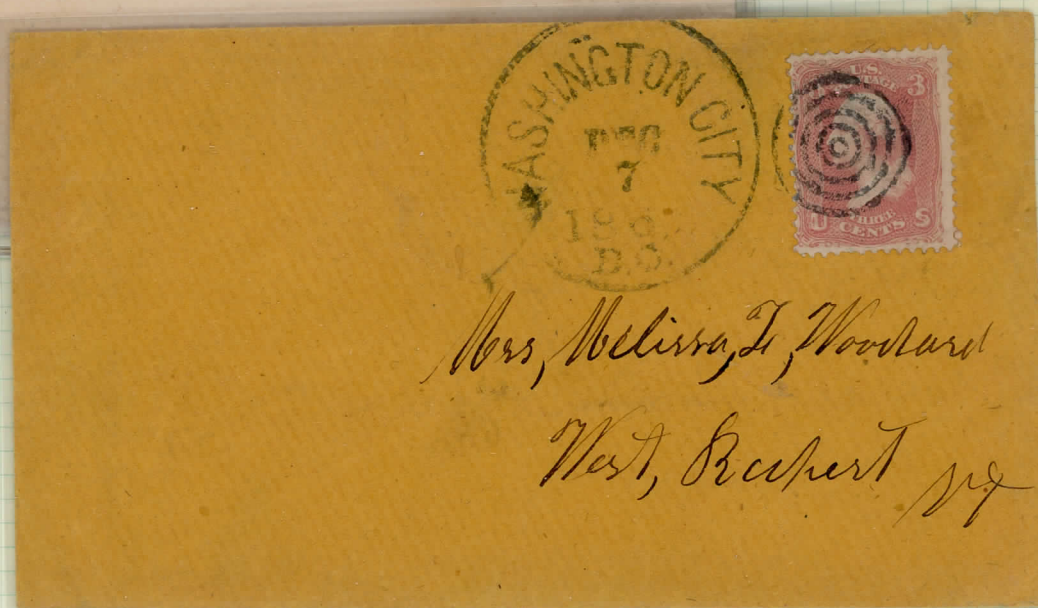 WASHINGTON CITY
DEC
7
D.C.
U.S. POSTAGE 3
THREE
U CENTS S
Mrs, Melissa, F, Woodard
West, Rupert Vt